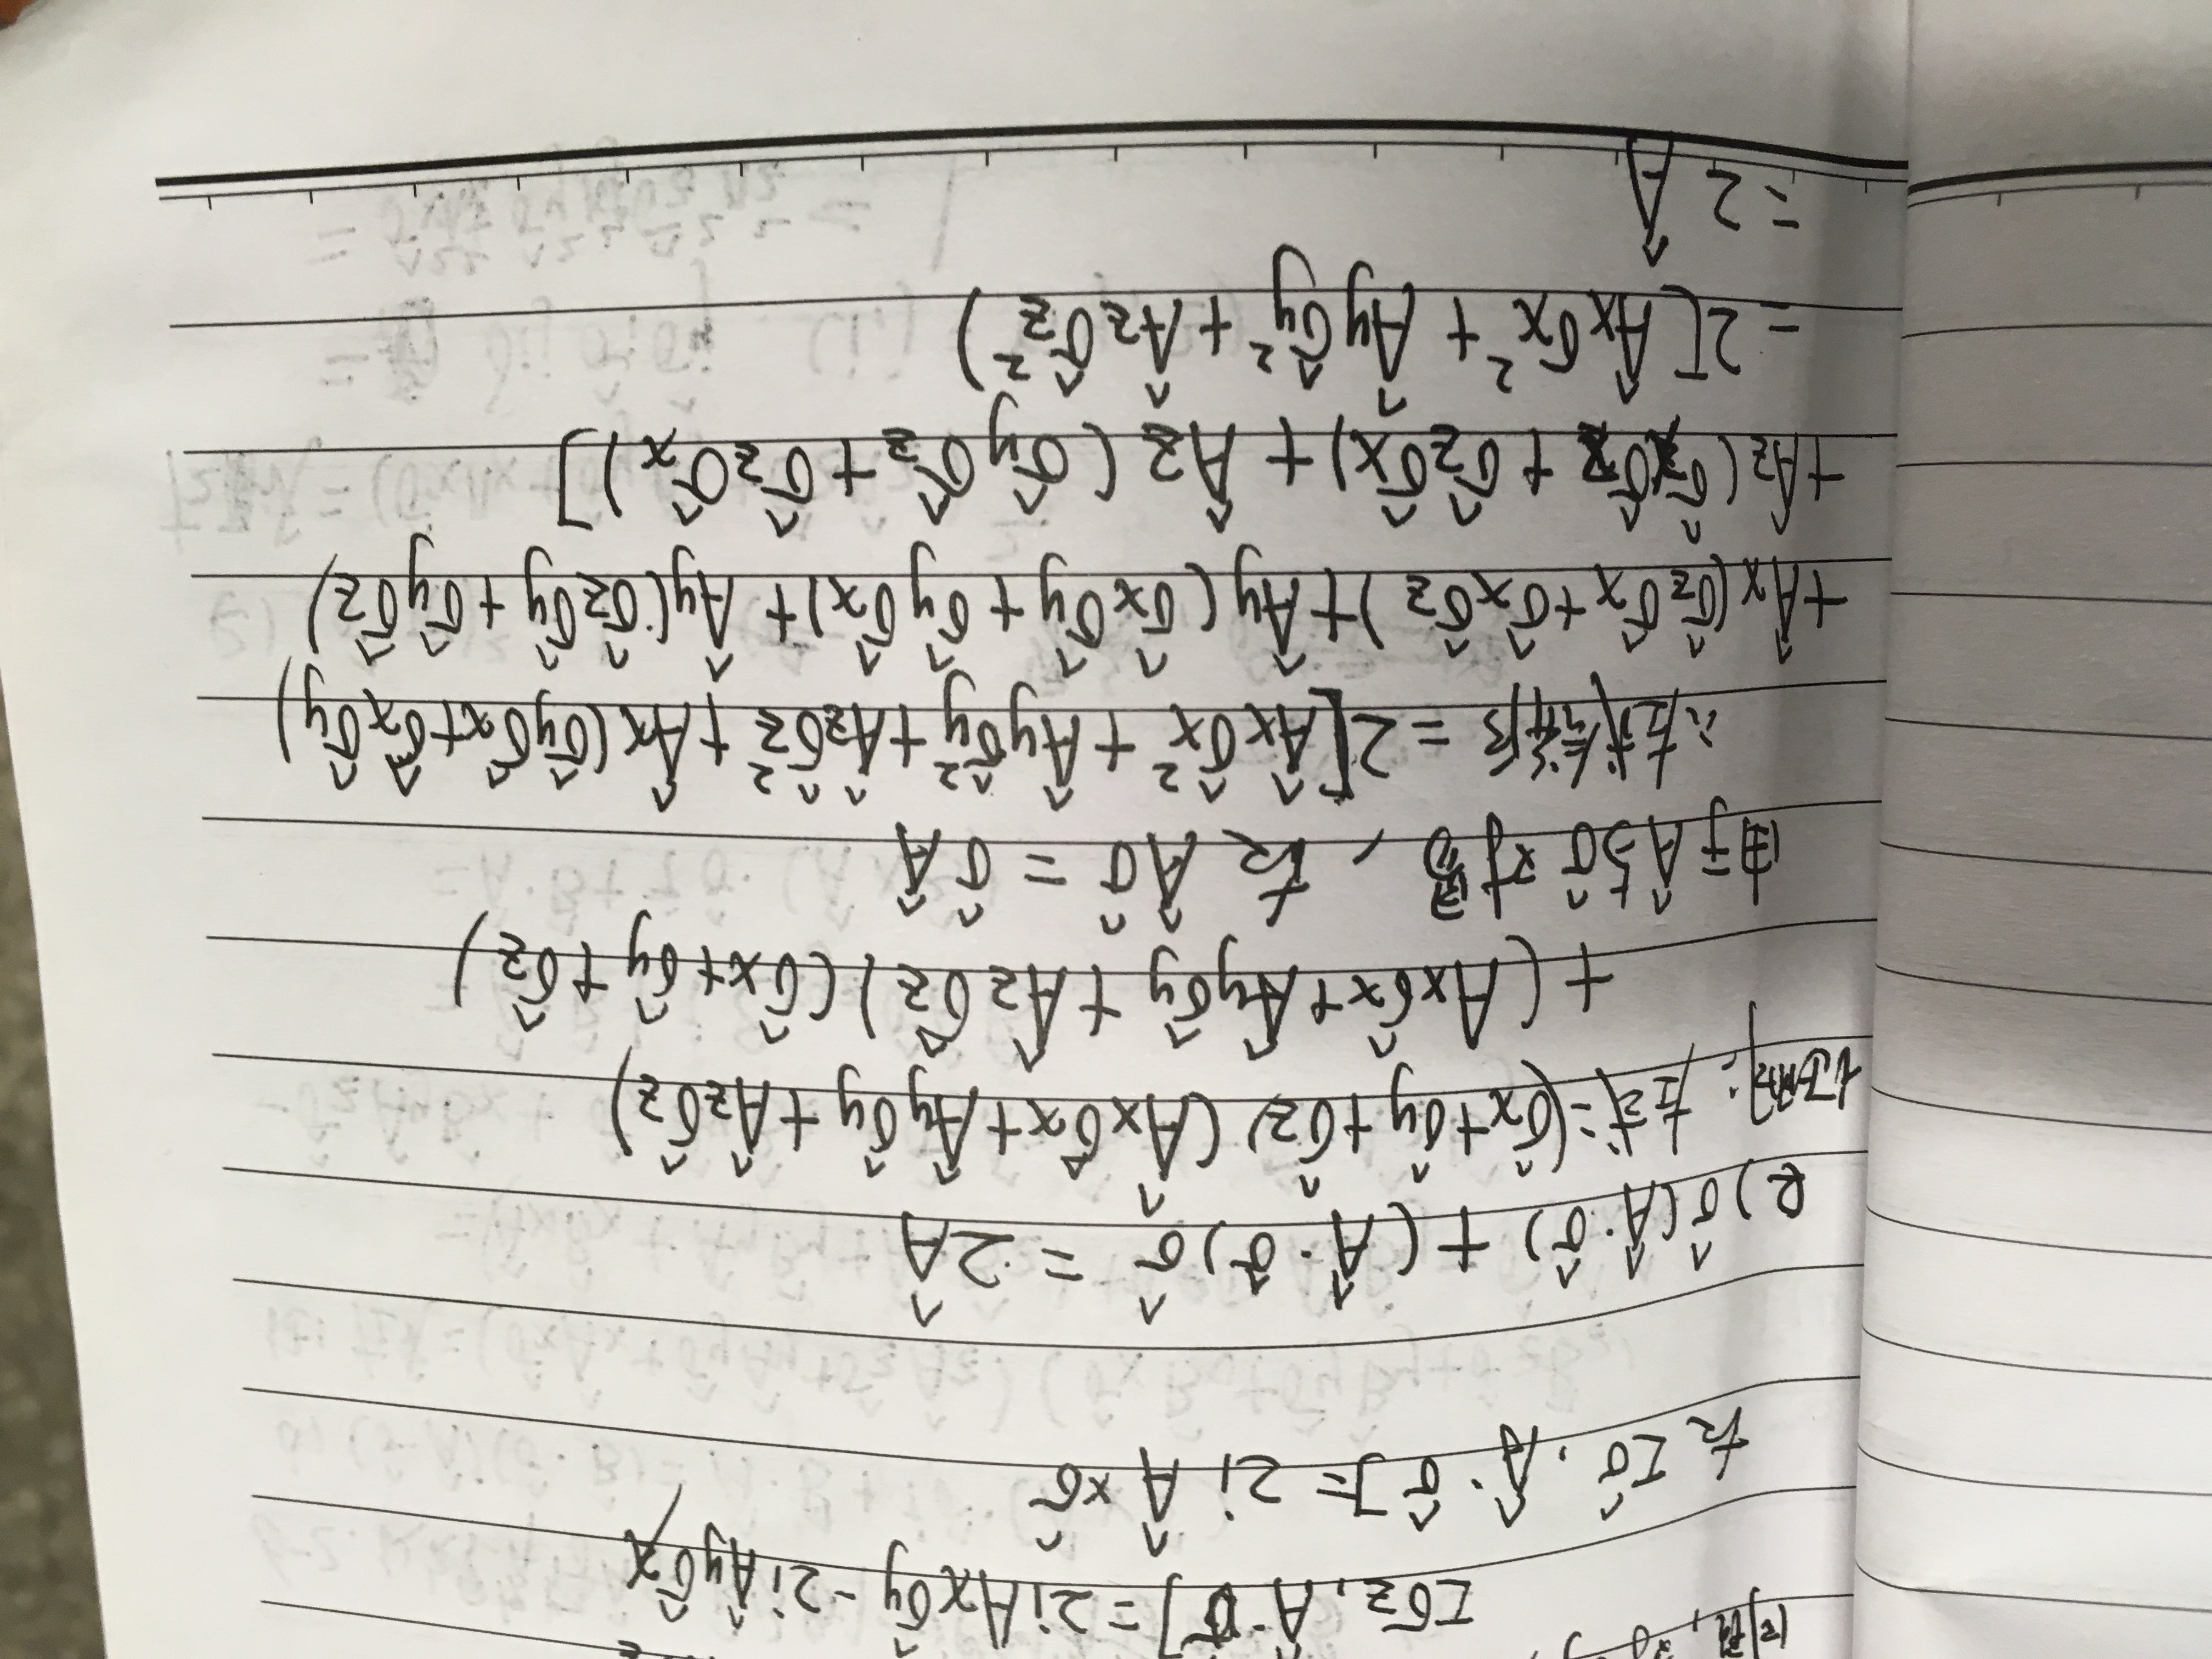 同理,对
[σz, Â·σ̂] = 2iAxσ̂y - 2iÂyσ̂x
故 [σ̂, Â·σ̂] = 2i Â×σ̂
2) σ̂(Â·σ̂) + (Â·σ̂)σ̂ = 2Â
证明: 左式=(σ̂x+σ̂y+σ̂z)(Âxσ̂x+Âyσ̂y+Âzσ̂z)
+(Axσ̂x+Âyσ̂y+Âzσ̂z)(σ̂x+σ̂y+σ̂z)
由于Â与σ̂对易, 故 Âσ̂ = σ̂Â
∴左式合并后 = 2[Âxσ̂x²+Âyσ̂y²+Âzσ̂z²+Âx(σ̂yσ̂x+σ̂xσ̂y)
+Âx(σ̂zσ̂x+σ̂xσ̂z)+Ây(σ̂xσ̂y+σ̂yσ̂x)+Ây(σ̂zσ̂y+σ̂yσ̂z)
+Âz(σ̂xσ̂z+σ̂zσ̂x)+Âz(σ̂yσ̂z+σ̂zσ̂x)]
=2[Âxσx²+Âyσ̂y²+Âzσ̂z²)
=2Â